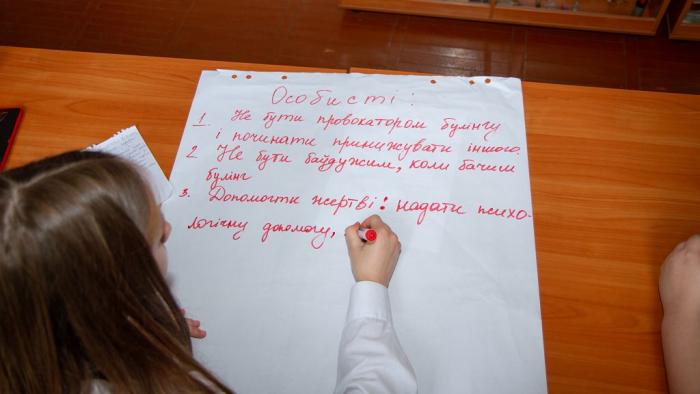 Особисті:
1. Не бути провокатором булінгу
і починати принижувати іншого.
2 Не бути байдужим, коли бачим
булінг
3. Допомогти жертві: надати психо-
логічну допомогу,